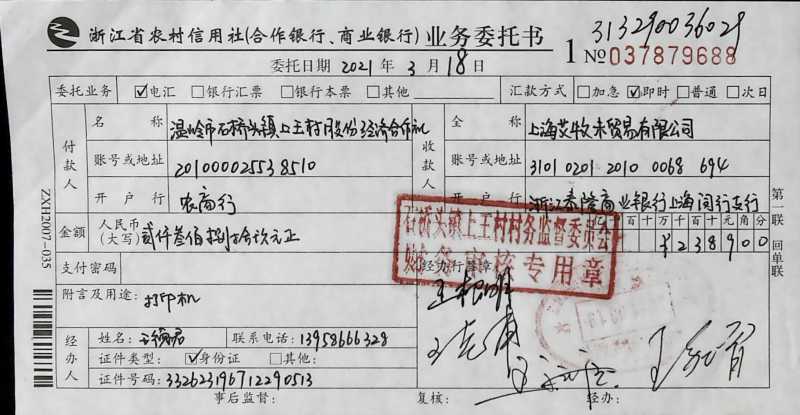 浙江省农村信用社(合作银行、商业银行) 业务委托书
313290036029
委托日期 2021 年 3 月 18 日
1 № 037879688
委托业务 ☑电汇 □银行汇票 □银行本票 □其他 汇款方式 □加急 ☑即时 □普通 □次日
付款人 名称 温岭市石桥头镇上王村股份经济合作社
收款人 全称 上海艾牧未贸易有限公司
账号或地址 201000025538510
账号或地址 3101 0201 2010 0068 694
开户行 农商行
开户行 浙江泰隆商业银行上海闵行支行
金额 人民币(大写) 贰仟叁佰捌拾玖元正
千 百 十 万 千 百 十 元 角 分
¥ 2 3 8 9 0 0
石桥头镇上王村村务监督委员会
财务审核专用章
支付密码
经办行签章
附言及用途: 打印机
经办人 姓名: 王 君 联系电话: 13958666328
证件类型: ☑身份证 □其他:
证件号码: 332623196712290513
事后监督: 复核: 经办:
ZXH2007-035
第一联 回单联